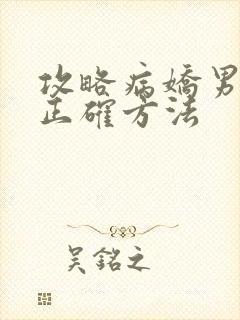 攻略病嬌男
正確方法
吳銘之